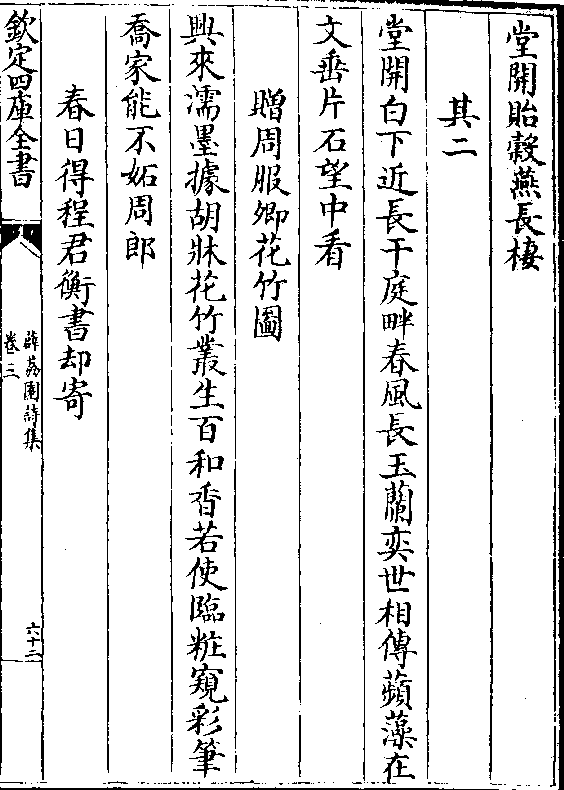 堂開貽穀燕長棲
其二
堂開白下近長干庭畔春風長玉蘭奕世相傳蘋藻在
文垂片石望中看
贈周服卿花竹圖
興來濡墨據胡牀花竹叢生百和香若使臨粧窺彩筆
喬家能不妬周郎
春日得程君衡書却寄
欽定四庫全書
薜荔園詩集
卷三
六十二